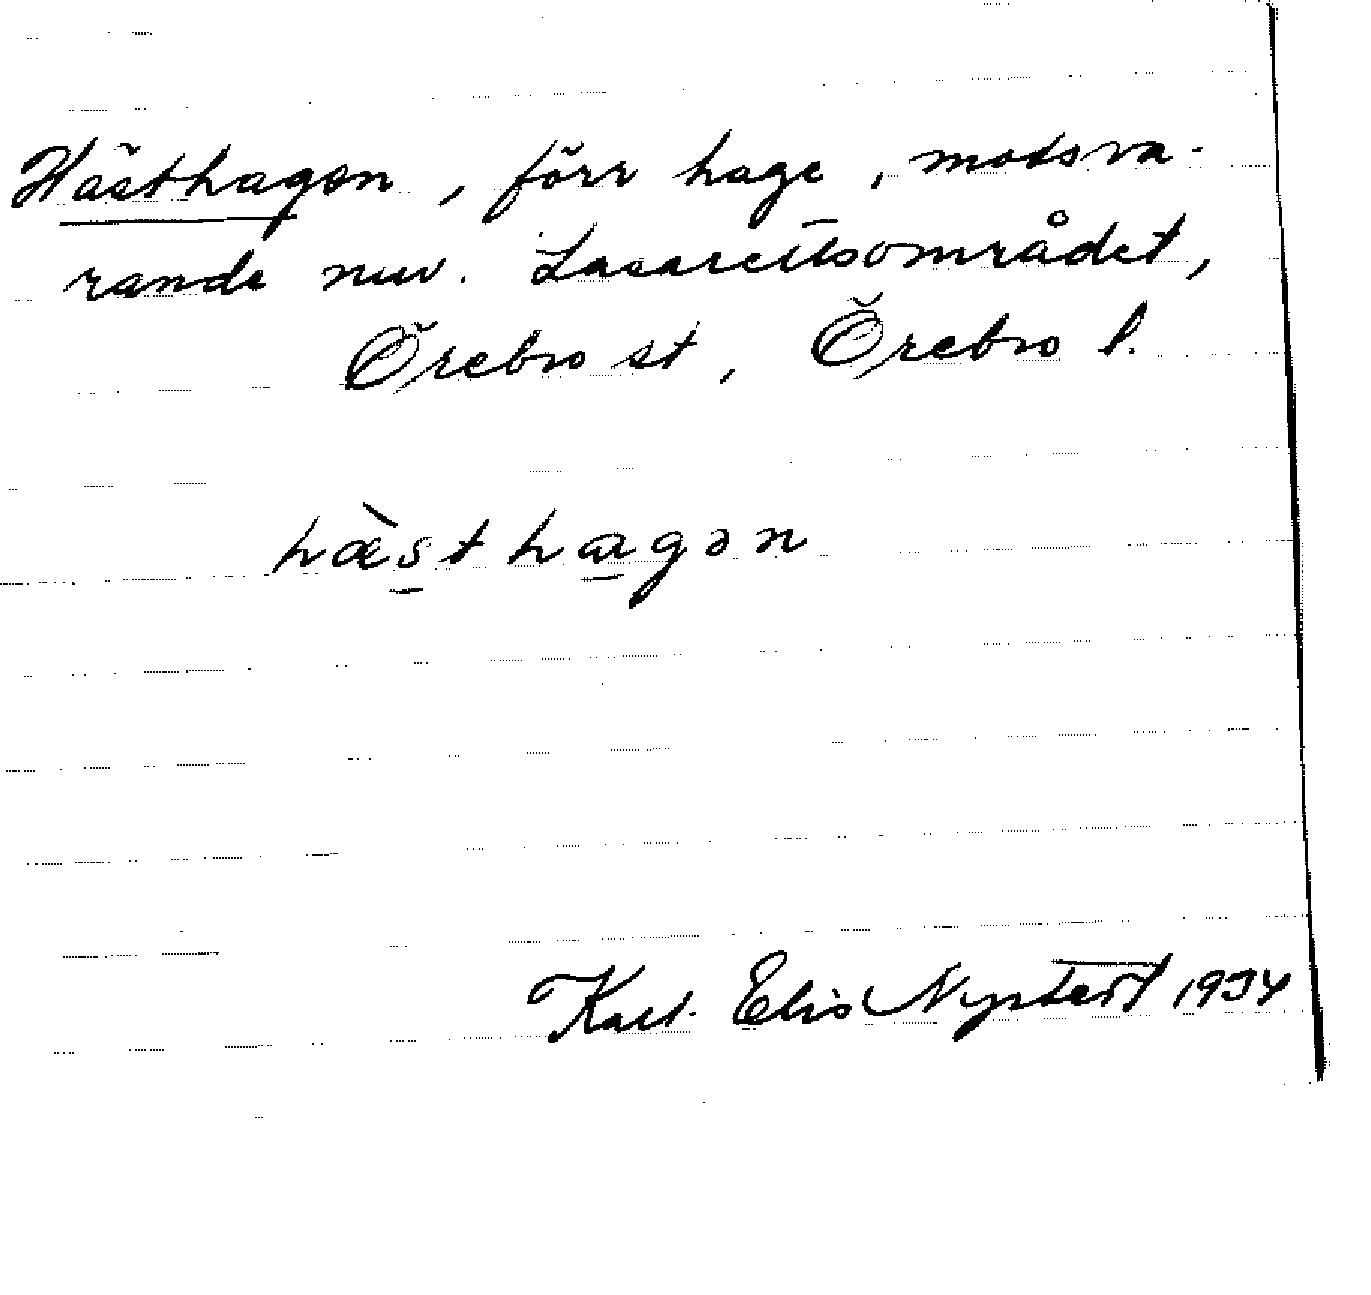 Hästhagen, förr hage, motsva-
rande nuv. Lasarettsområdet,
Örebro st, Örebro l.
hæ̀sthagən
Karl-Elis Nystert 1934